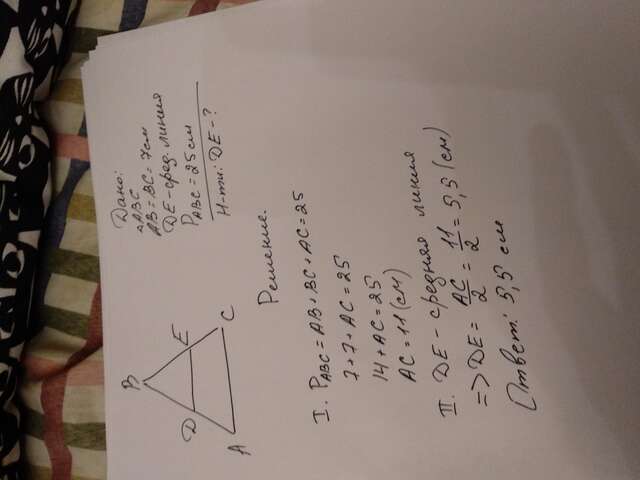 A
D
B
E
C
Дано:
△ABC
AB=BC=7см
DE-сред. линия
P_ABC=25см
Н-ти: DE-?
Решение.
I. P_ABC=AB+BC+AC=25
7+7+AC=25
14+AC=25
AC=11(см)
II. DE-средняя линия
=>DE=AC/2=11/2=5,5(см)
Ответ: 5,5 см